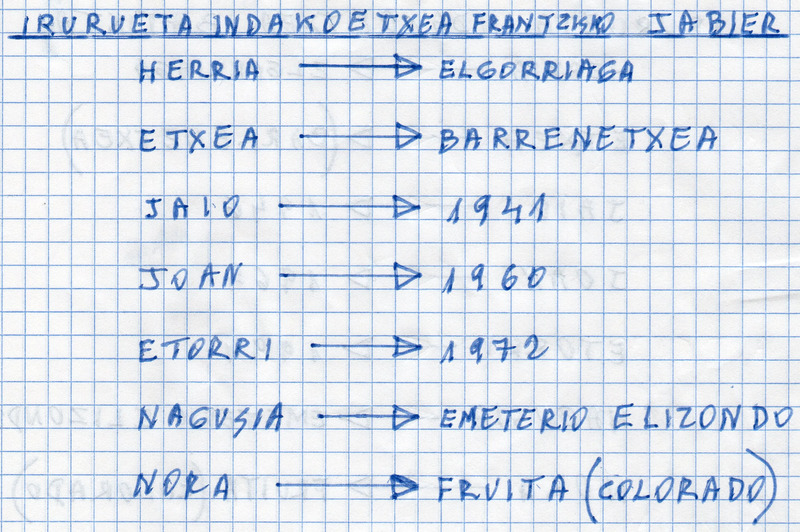 IRURUETA INDAKOETXEA FRANTZISKO JABIER
HERRIA → ELGORRIAGA
ETXEA → BARRENETXEA
JAIO → 1941
JOAN → 1960
ETORRI → 1972
NAGUSIA → EMETERIO ELIZONDO
NORA → FRUITA (COLORADO)